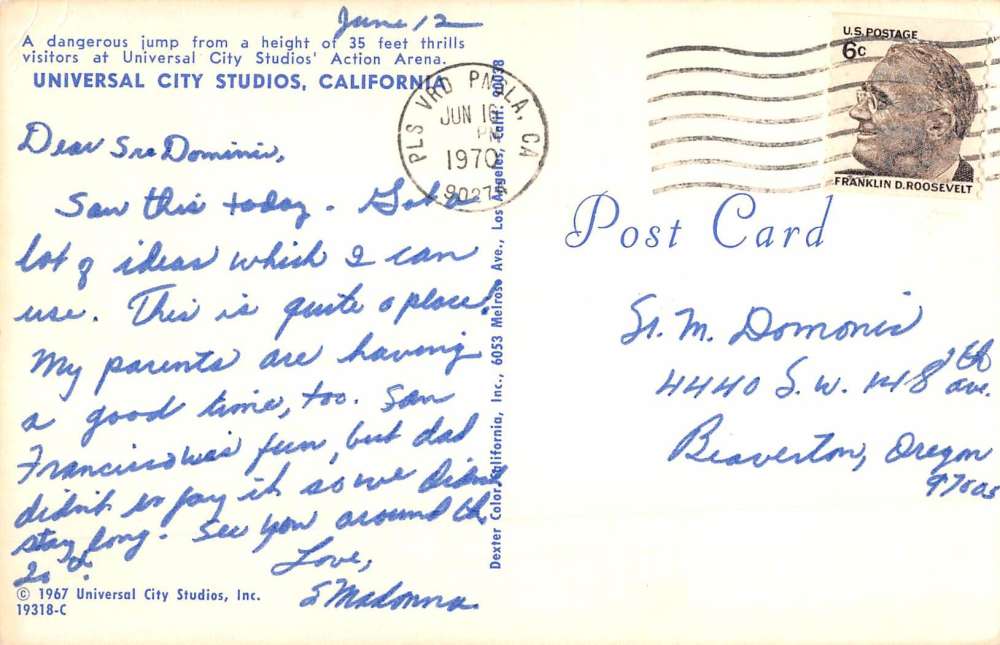 June 12
A dangerous jump from a height of 35 feet thrills
visitors at Universal City Studios' Action Arena.
UNIVERSAL CITY STUDIOS, CALIFORNIA
Dear Sra Dominic,
Saw this today. Got a
lot of ideas which I can
use. This is quite a place!
My parents are having
a good time, too. San
Francisco was fun, but dad
didn't enjoy it so we didn't
stay long. See you around the
20
Love,
S Madonna
© 1967 Universal City Studios, Inc.
19318-C
Dexter Color California, Inc., 6053 Melrose Ave., Los Angeles, Calif. 90038
PLS VRD PNSLA, CA
JUN 16
PM
1970
90274
U.S. POSTAGE
6c
FRANKLIN D. ROOSEVELT
Post Card
Sr. M. Domonic
4440 S.W. 148th ave.
Beaverton, Oregon
97005